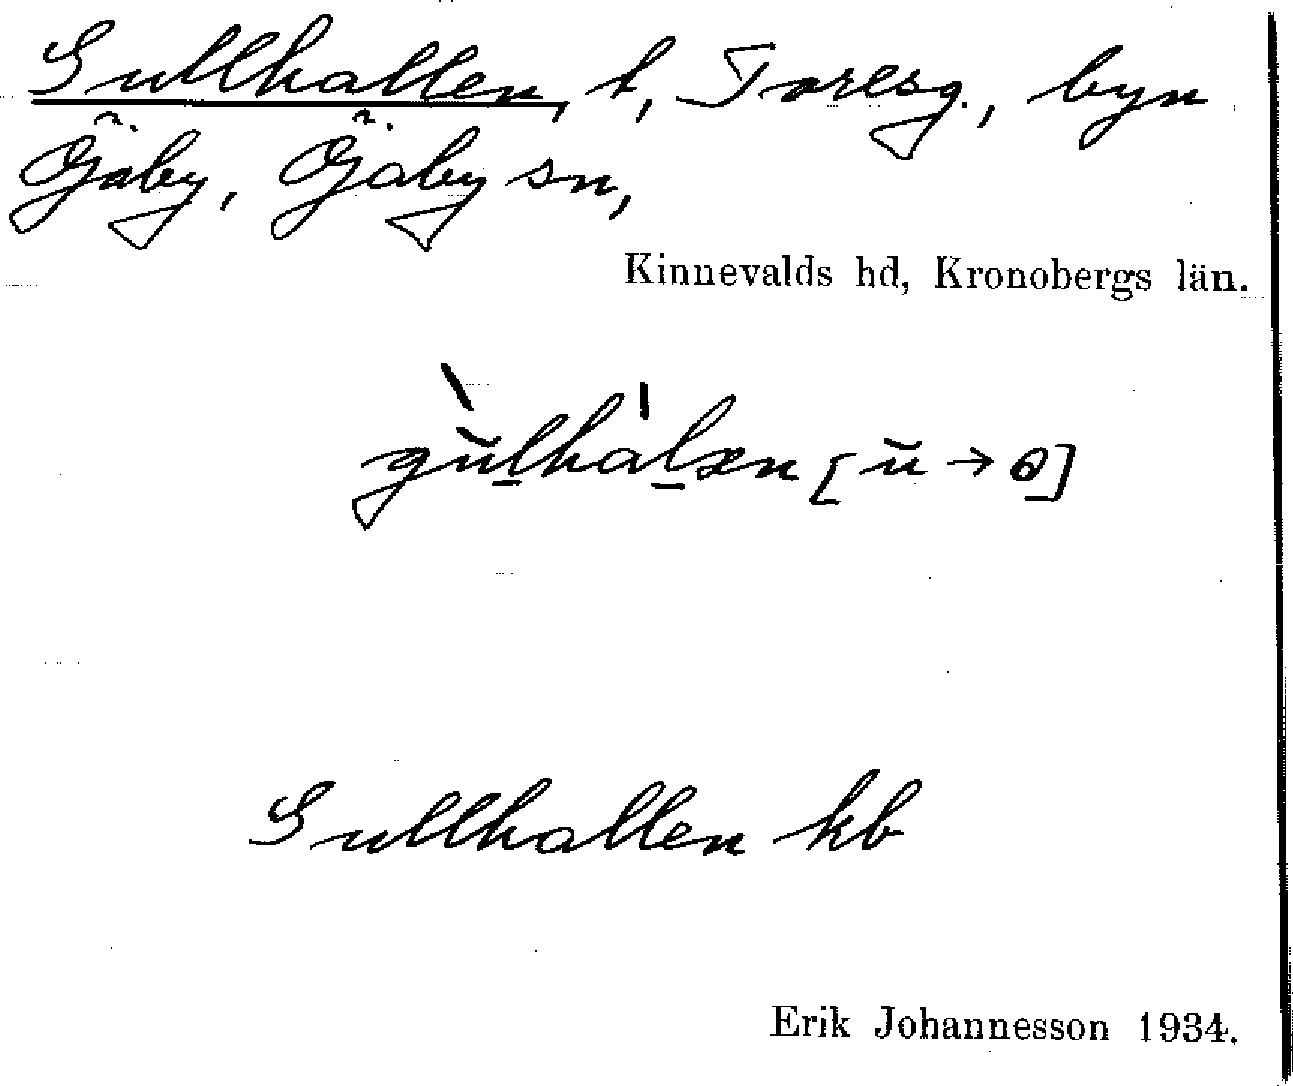 Gullhallen, t, Toresg., byn
Öjaby, Öjaby sn,
Kinnevalds hd, Kronobergs län.
gùlhàlən [ŭ → o]
Gullhallen kb
Erik Johannesson 1934.